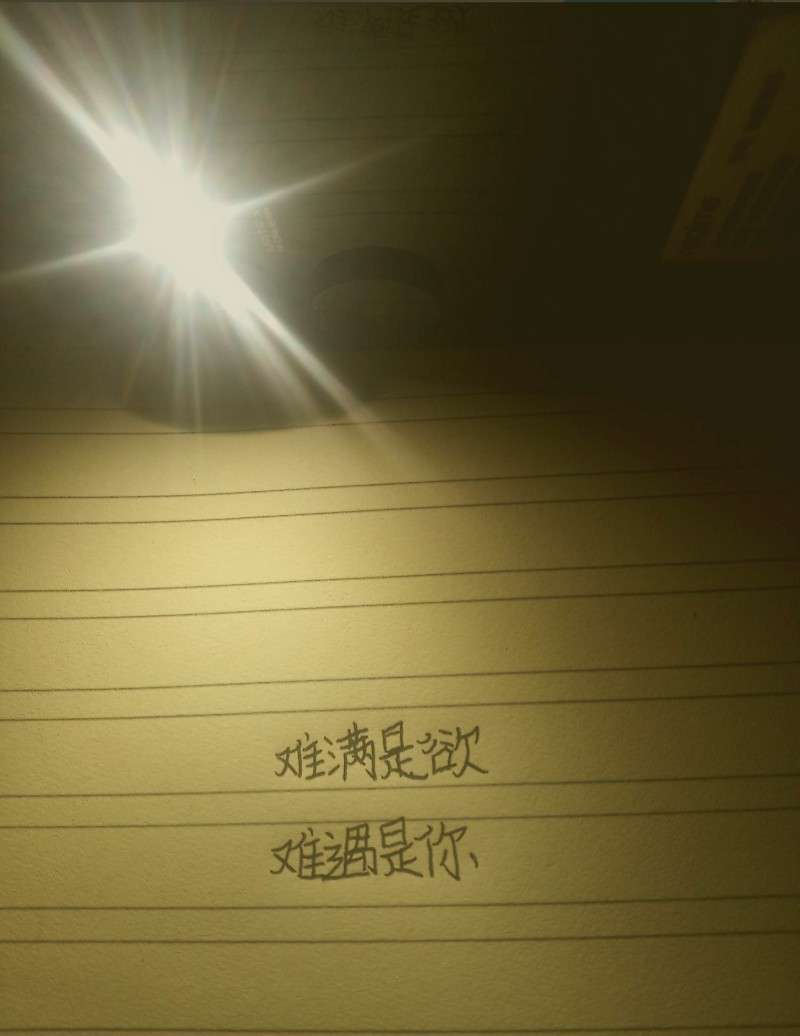 难满是欲
难遇是你